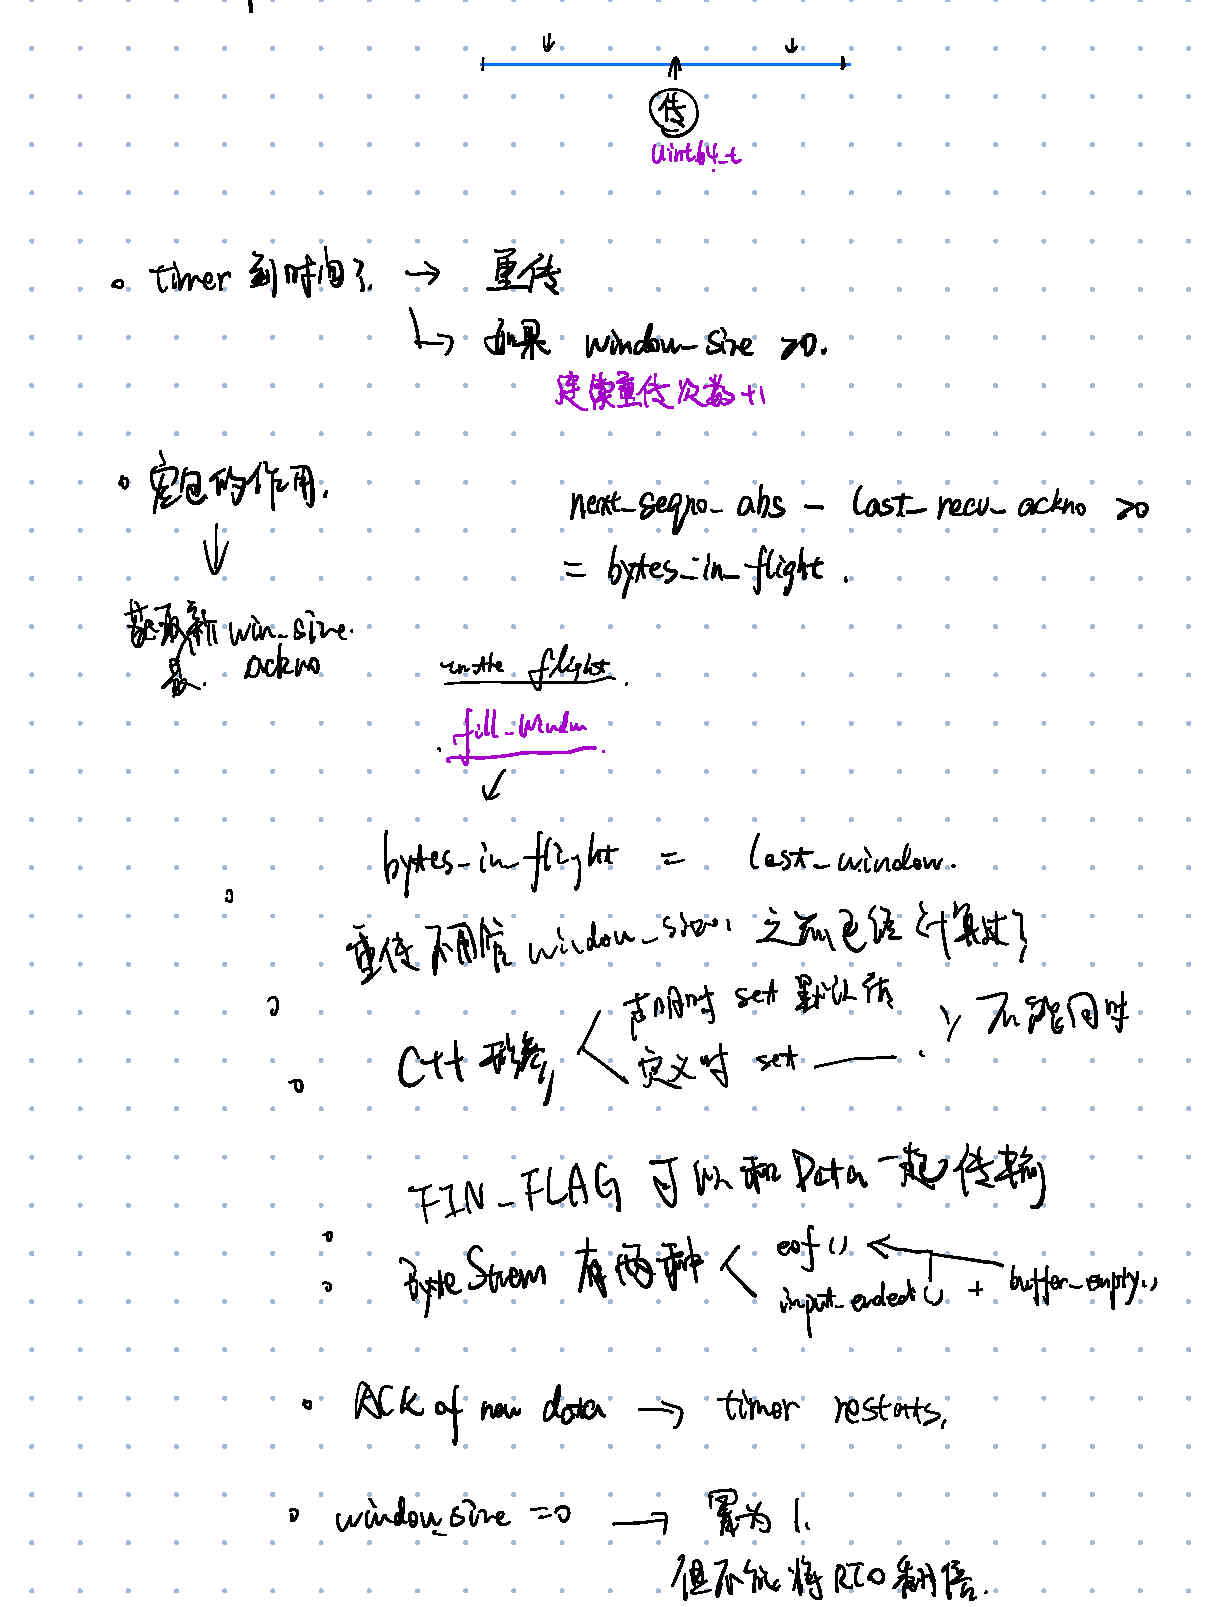 传
uint64_t
timer 到时间了. → 重传
↳ 如果 window_size >0.
连续重传次数+1
空包的作用.
next_seqno_abs - last_recv_ackno >0
= bytes_in_flight.
获取新 win_size.
ackno
in the flight.
fill_window
bytes_in_flight = last_window.
重传不用管 window_size, 之前已经计算过了
C++ 形参 声明时 set 默认值
定义时 set —— . 不能同时
FIN_FLAG 可以和 Data 一起传输
ByteStream 有两种 eof()
input_ended() + buffer_empty()
ACK of new data → timer restarts.
window_size =0 → 置为 1.
但不能将 RTO 翻倍.